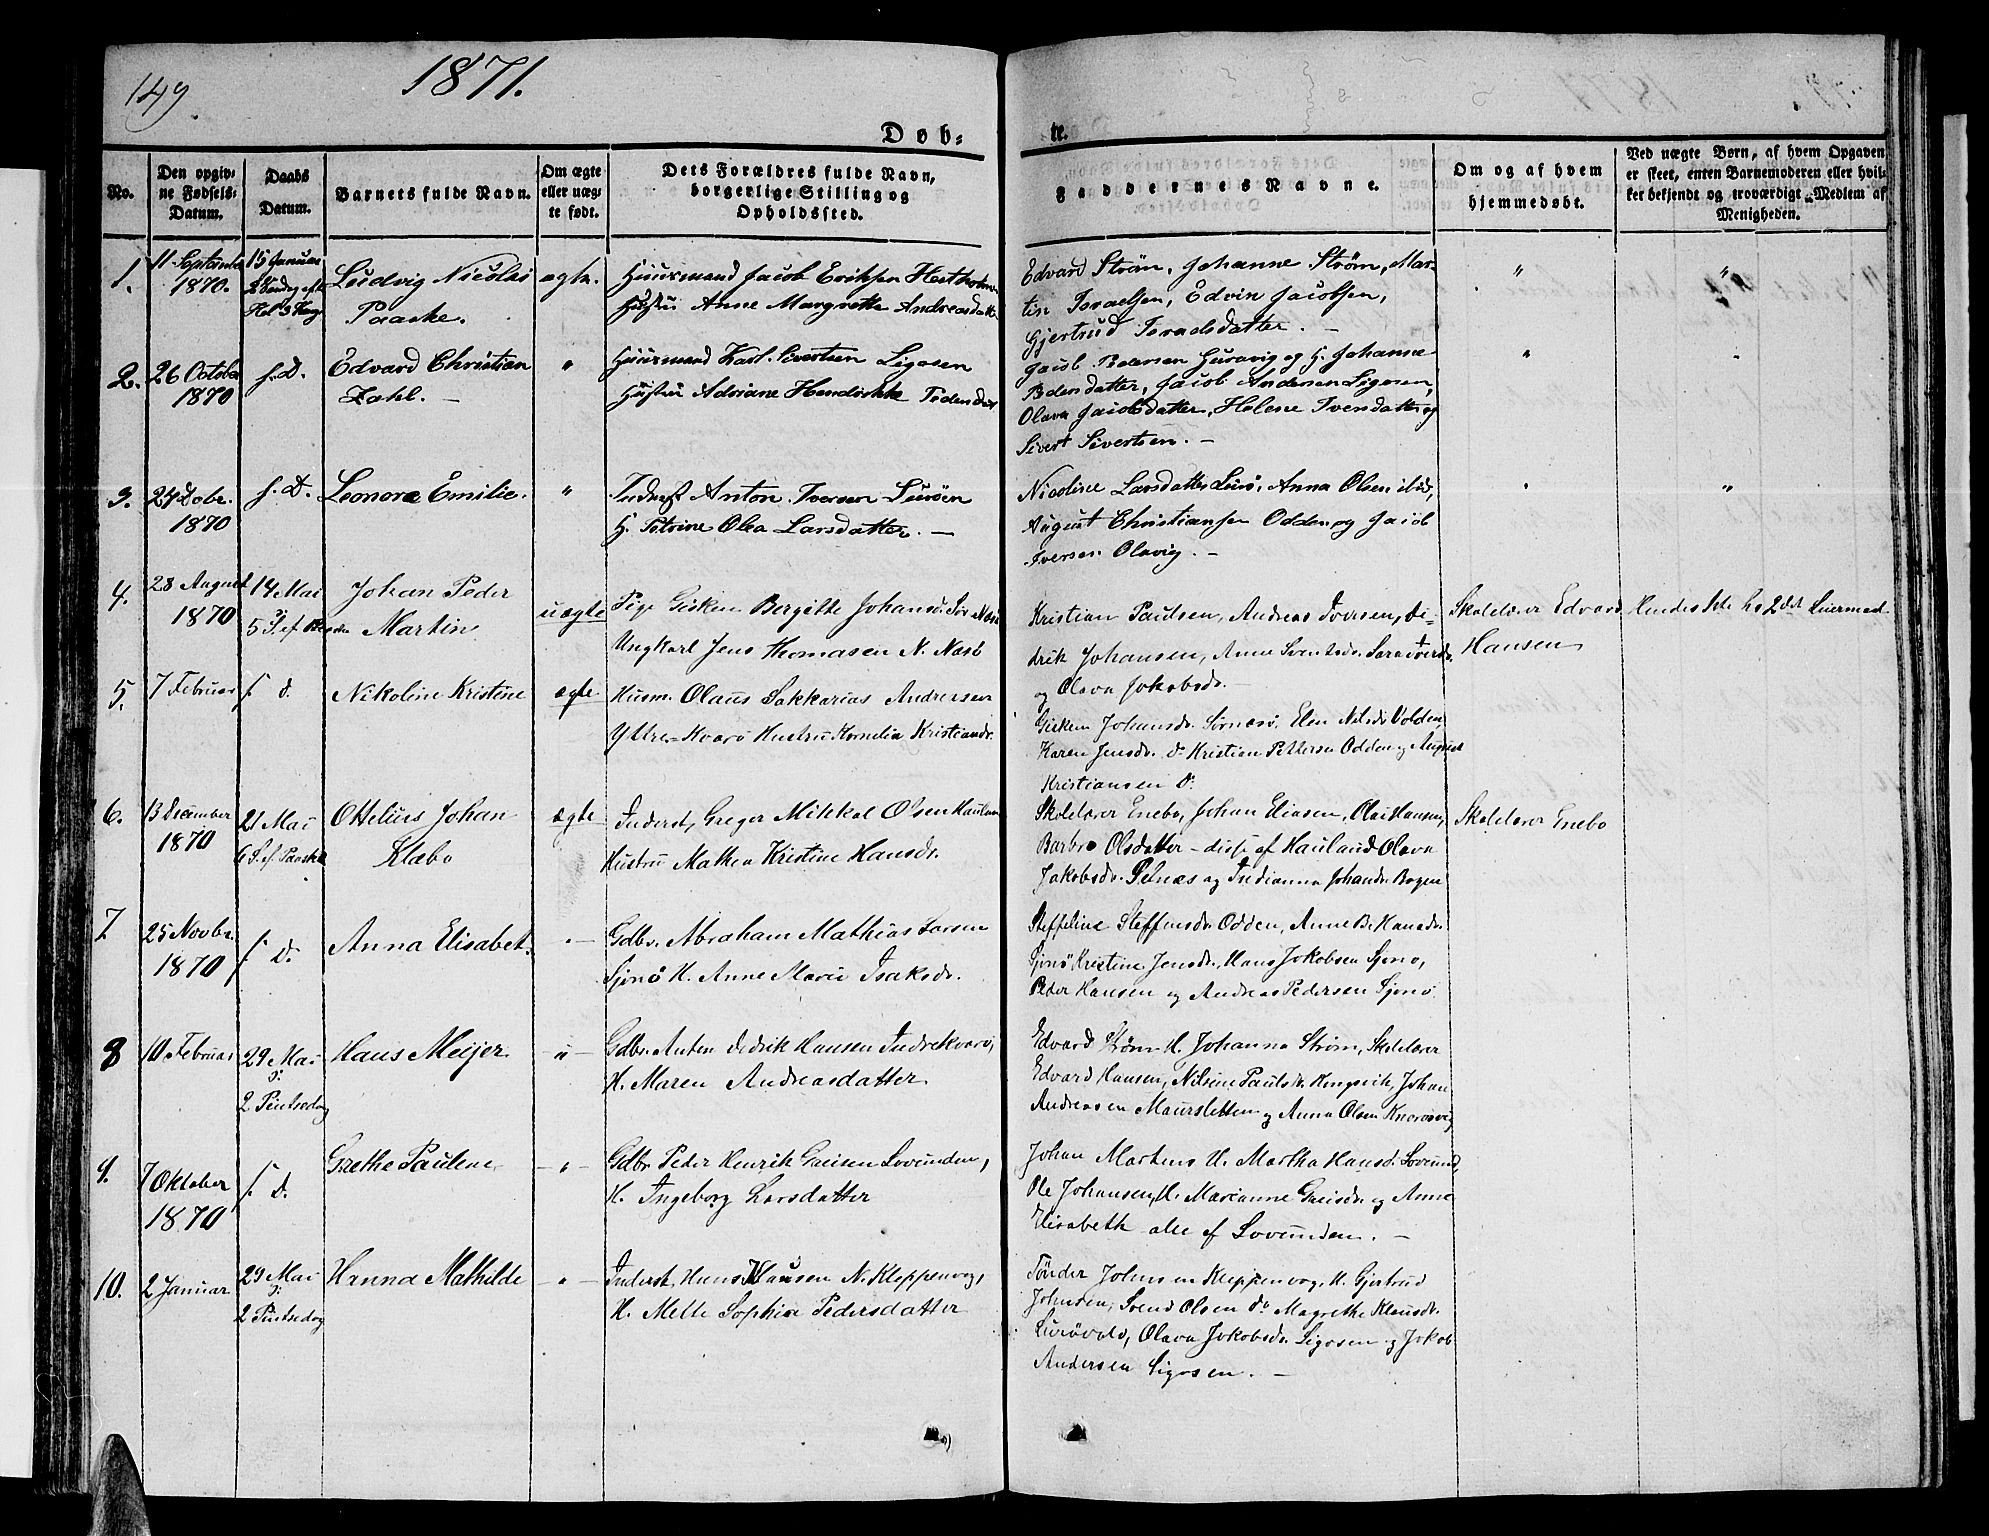 149.
1871.
Døb-
te.
No.
Den opgiv-
ne Fødsels-
Datum.
Daabs
Datum.
Barnets fulde Navn.
Om ægte
eller uæg-
te født.
Dets Forældres fulde Navn,
borgerlige Stilling og
Opholdssted.
Faddernes Navne.
Om og af hvem
hjemmedøbt.
Ved uægte Børn, af hvem Opgaven
er skeet, enten Barnemoderen eller hvil-
ket bekjendt og troværdigt Medlem af
Menigheden.
1.
11 Septembr
1870.
15 Januar
2 Søndag eft
Hel 3 Kong
Ludvig Nicolai
Paaske.
ægte.
Huusmand Jacob Eriksen Hestholmen
Hustru Anne Margrethe Andreasdatt.
Edvard Strøm, Johanne Strøm, Mar-
tin Israelsen, Edvin Jacobsen,
Gjertrud Israelsdatter. —
2.
26 October
1870
s. D.
Edvard Christian
Zahl. —
"
Huusmand Karl Sivertsen Ligosen
Hustru Adriane Hendrikke
Jacob Pedersen og H. Johanne
Pedersdatter, Jacob Andersen Ligosen,
Olava Jacobsdatter, Helene Iversdatter og
Sivert Sivertsen. —
3.
1870
s. D.
Leonora Emilie.
"
Inderst Anton Iversen Lurøen
H. Petrine Olea Larsdatter. —
Nicoline Larsdatter Lurø, Anna Olsen ibid,
August Christiansen Odden og Jacob
Iversen Olavig. —
4.
28 August
1870
14 Mai
5 S. ef Paaske
Johan Peder
Martin
uægte
Pige Gisken Bergitte Johansd. Sør Næsø
Ungkarl Jens Thomasen N. Næsø
Kristian Paulsen, Andreas Iversen, Di-
drik Johansen, Anne Svendsdr. Sara Iversdr.
og Olava Jakobsdr. —
Skolelærer Edvard
Hansen
Hendes 1ste hs 2det Leiermaal
5.
7 Februar
s. d.
Nikoline Kristine
ægte
Husm. Olaus Sakkarias Andersen
Ytre-Kvarø Hustru Kornelia Kristiansdr.
Gisken Johansdr. Sørnæsø, Elen Nilsdr Volden,
Karen Jensdr. do Kristian Pettersen Odden og August
Kristiansen do
6.
13 December
1870
21 Mai
6 S. ef Paaske
Ottelius Johan
Klæbo
ægte
Inderst, Gregor Mikkal Olsen Hauland
Hustru Mathea Kristine Hansdr.
Skolelærer Enebo, Johan Eliasen, Olai Hansen,
Barbro Olsdatter – disse af Hauland Olava
Jakobsdr. Selnæs og Indianna Johansdr Bogen
Skolelærer Enebo
7
25 Novbr.
1870
s. D.
Anna Elisabet.
"
Gdbr. Abraham Mathias Larsen
Sjonø H. Anne Marie Isaksdr.
Steffeline Steffensdr. Odden, Anne B. Hansdr.
Sjonø Kristine Jensdr., Hans Jokobsen Sjonø,
Peder Hansen og Andreas Pedersen Sjonø
8
10 Februar
29 Mai
2 Pintsedag
Hans Meijer
"
Gdbr. Anton Didrik Hansen Indrekvarø,
H. Maren Andreasdatter
Edvard Strøm H. Johanna Strøm, Skolelærer
Edvard Hansen, Nilsine Paulsdr. Kongsvik, Johan
Andreasen Maursletten og Anna Olsen Kvarøvig
9.
7 Oktober
1870
s. D.
Grethe Pauline
"
Gdbr. Peder Henrik Greisen Lovunden,
H. Ingeborg Larsdatter
Johan Martens H. Martha Hansd. Lovund,
Ole Johansen, H. Marianne Greisdr. og Anne
Elisabeth alle af Lovunden. —
10.
2 Januar
29 Mai
2 Pintsedag
Hanna Mathilde
"
Inderst, Hans Klausen N. Kleppenvog,
H. Mette Sophia Pedersdatter
Tønder Johnsen Kleppenvog, H. Gjertrud
Johnsen, Svend Olsen do Magrethe Klausdr.
Lurøvold, Olava Jokobsdr. Ligosen og Jokob
Andersen Ligosen. —